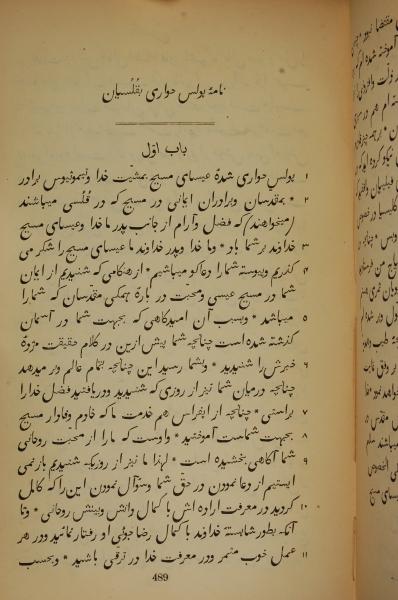 نامهٔ بولس حواری بقُلُسیان
باب اوّل
۱ بولس حواری شدهٔ عیسای مسیح بمشیّت خدا وتیموتیوس برادر
۲ * بمقدسان وبرادران ایمانی در مسیح که در قُلُسی میباشند
(میخواهند) که فضل وآرام از جانب پدر ما خدا وعیسای مسیح
۳ خداوند بر شما باد * وما خدا وپدر خداوند ما عیسای مسیح را شکر می
۴ کنیم وپیوسته شما را دعاکو میباشیم * از هنکامی که شنیدیم از ایمان
شما در مسیح عیسی ومحبّت در بارهٔ همکی مقدّسان که شما را
۵ میباشد * وبسبب آن امیدکاهی که بجهت شما در آسمان
کذشته شده است چنانچه شما پیش ازین در کلام حقیقت مژدهٔ
۶ خیرش را شنیدید * وبشما رسید این چنانچه بتمام عالم ودر میدهد
چنانچه درمیان شما نیز از روزی که شنیدید ودریافتید فضل خدا را
۷ براستی * چنانچه از اپفراس هم خدمت ما که خادم وفادار مسیح
۸ بجهت شماست آموختید * واوست که ما را از محبّت روحانی
۹ شما آکاهی بخشیده است * لهذا ما نیز از روزیکه شنیدیم باز نمی
ایستیم از دعا نمودن در حق شما وسئوآل نمودن این را که کامل
۱۰ کردید در معرفت اراده اش با کمال دانش وبینش روحانی * وتا
آنکه بطور شایستهٔ خداوند با کمال رضا جوئی او رفتار نمائید ودر هر
۱۱ عمل خوب مثمر ودر معرفت خدا در ترقی باشید * وبحسب
489